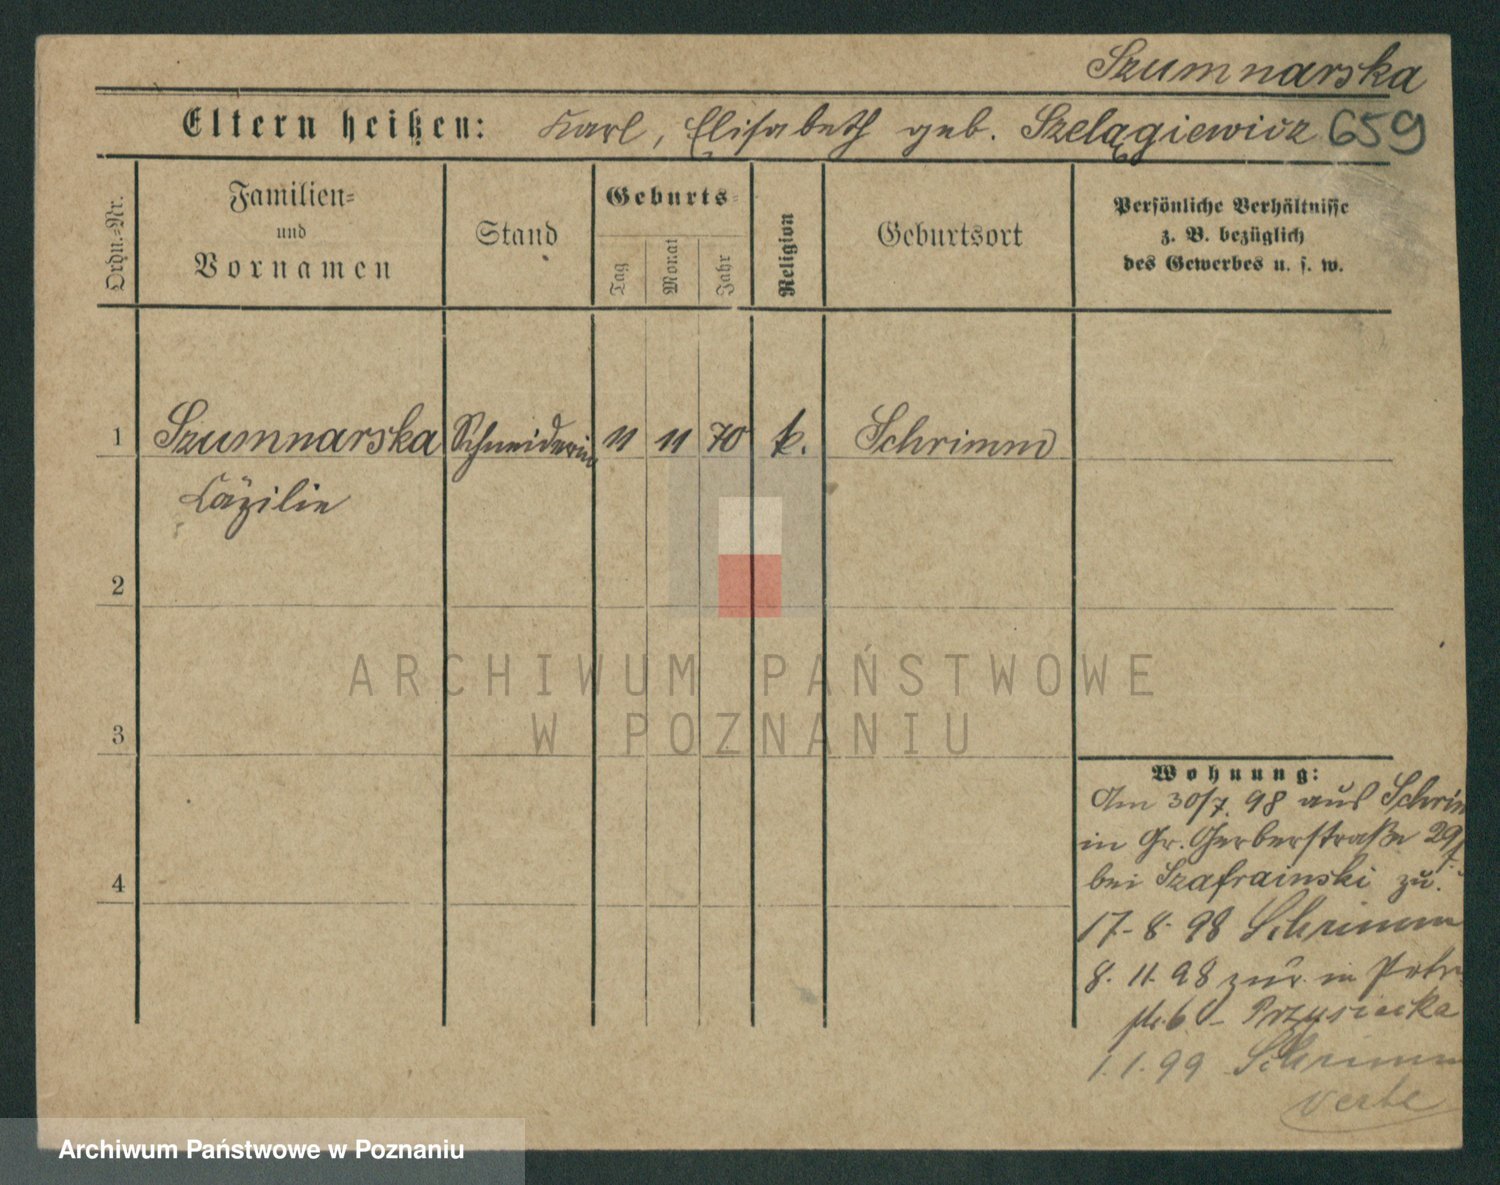 Szumnarska
Eltern heißen: Karl, Elisabeth geb. Szelągiewicz 659
Ordn.=Nr.
Familien=
und
Vornamen
Stand
Geburts=
Tag
Monat
Jahr
Religion
Geburtsort
Persönliche Verhältnisse
z. B. bezüglich
des Gewerbes u. s. w.
1 Szumnarska Schneiderin 11 11 70 k. Schrimm
Cäzilie
2
3
4
ARCHIWUM PAŃSTWOWE
W POZNANIU
Wohnung:
Am 30/7. 98 aus Schrim
in Gr. Gerberstraße 29
bei Szafrainski zu.
17-8-98 Schrimm
8. 11. 98 zur. in Petri
Przysiecka
1.1.99 Schrimm
verte
Archiwum Państwowe w Poznaniu